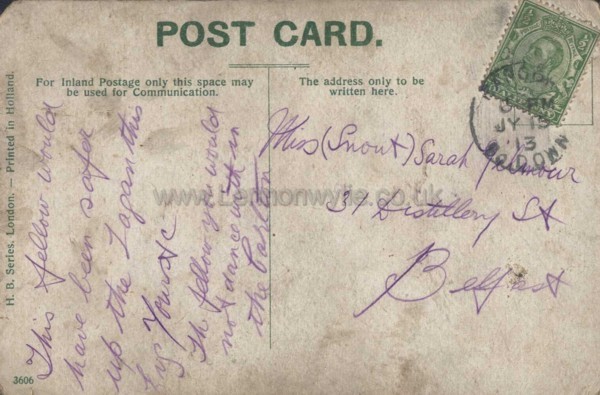 POST CARD.
For Inland Postage only this space may
be used for Communication.
The address only to be
written here.
H. B. Series, London. — Printed in Holland.
3606
This fellow would
have been safer
up the Lagan this
Yours &c
The fellow you would
not dance with in
the Parlour
Miss (Snout) Sarah Gilmour
31 Distillery St
Belfast
PM
JY 15
13
CO. DOWN
www.Lennonwylie.co.uk